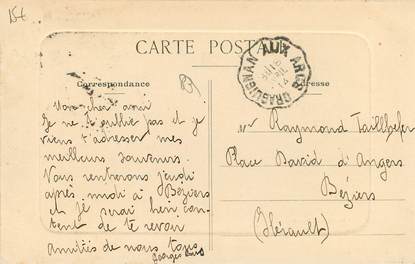 15€
CARTE POSTALE
DRAGUIGNAN AUX ARCS
Correspondance
Adresse
Mon cher ami
Je ne t'oublie pas et je
viens t'adresser mes
meilleurs souvenirs.
Nous rentrerons jeudi
après midi à Béziers
et je serai bien con-
tent de te revoir
amitiés de nous tous
Georges
Mr Raymond Tailhefer
Place David d'Angers
Béziers
(Hérault)